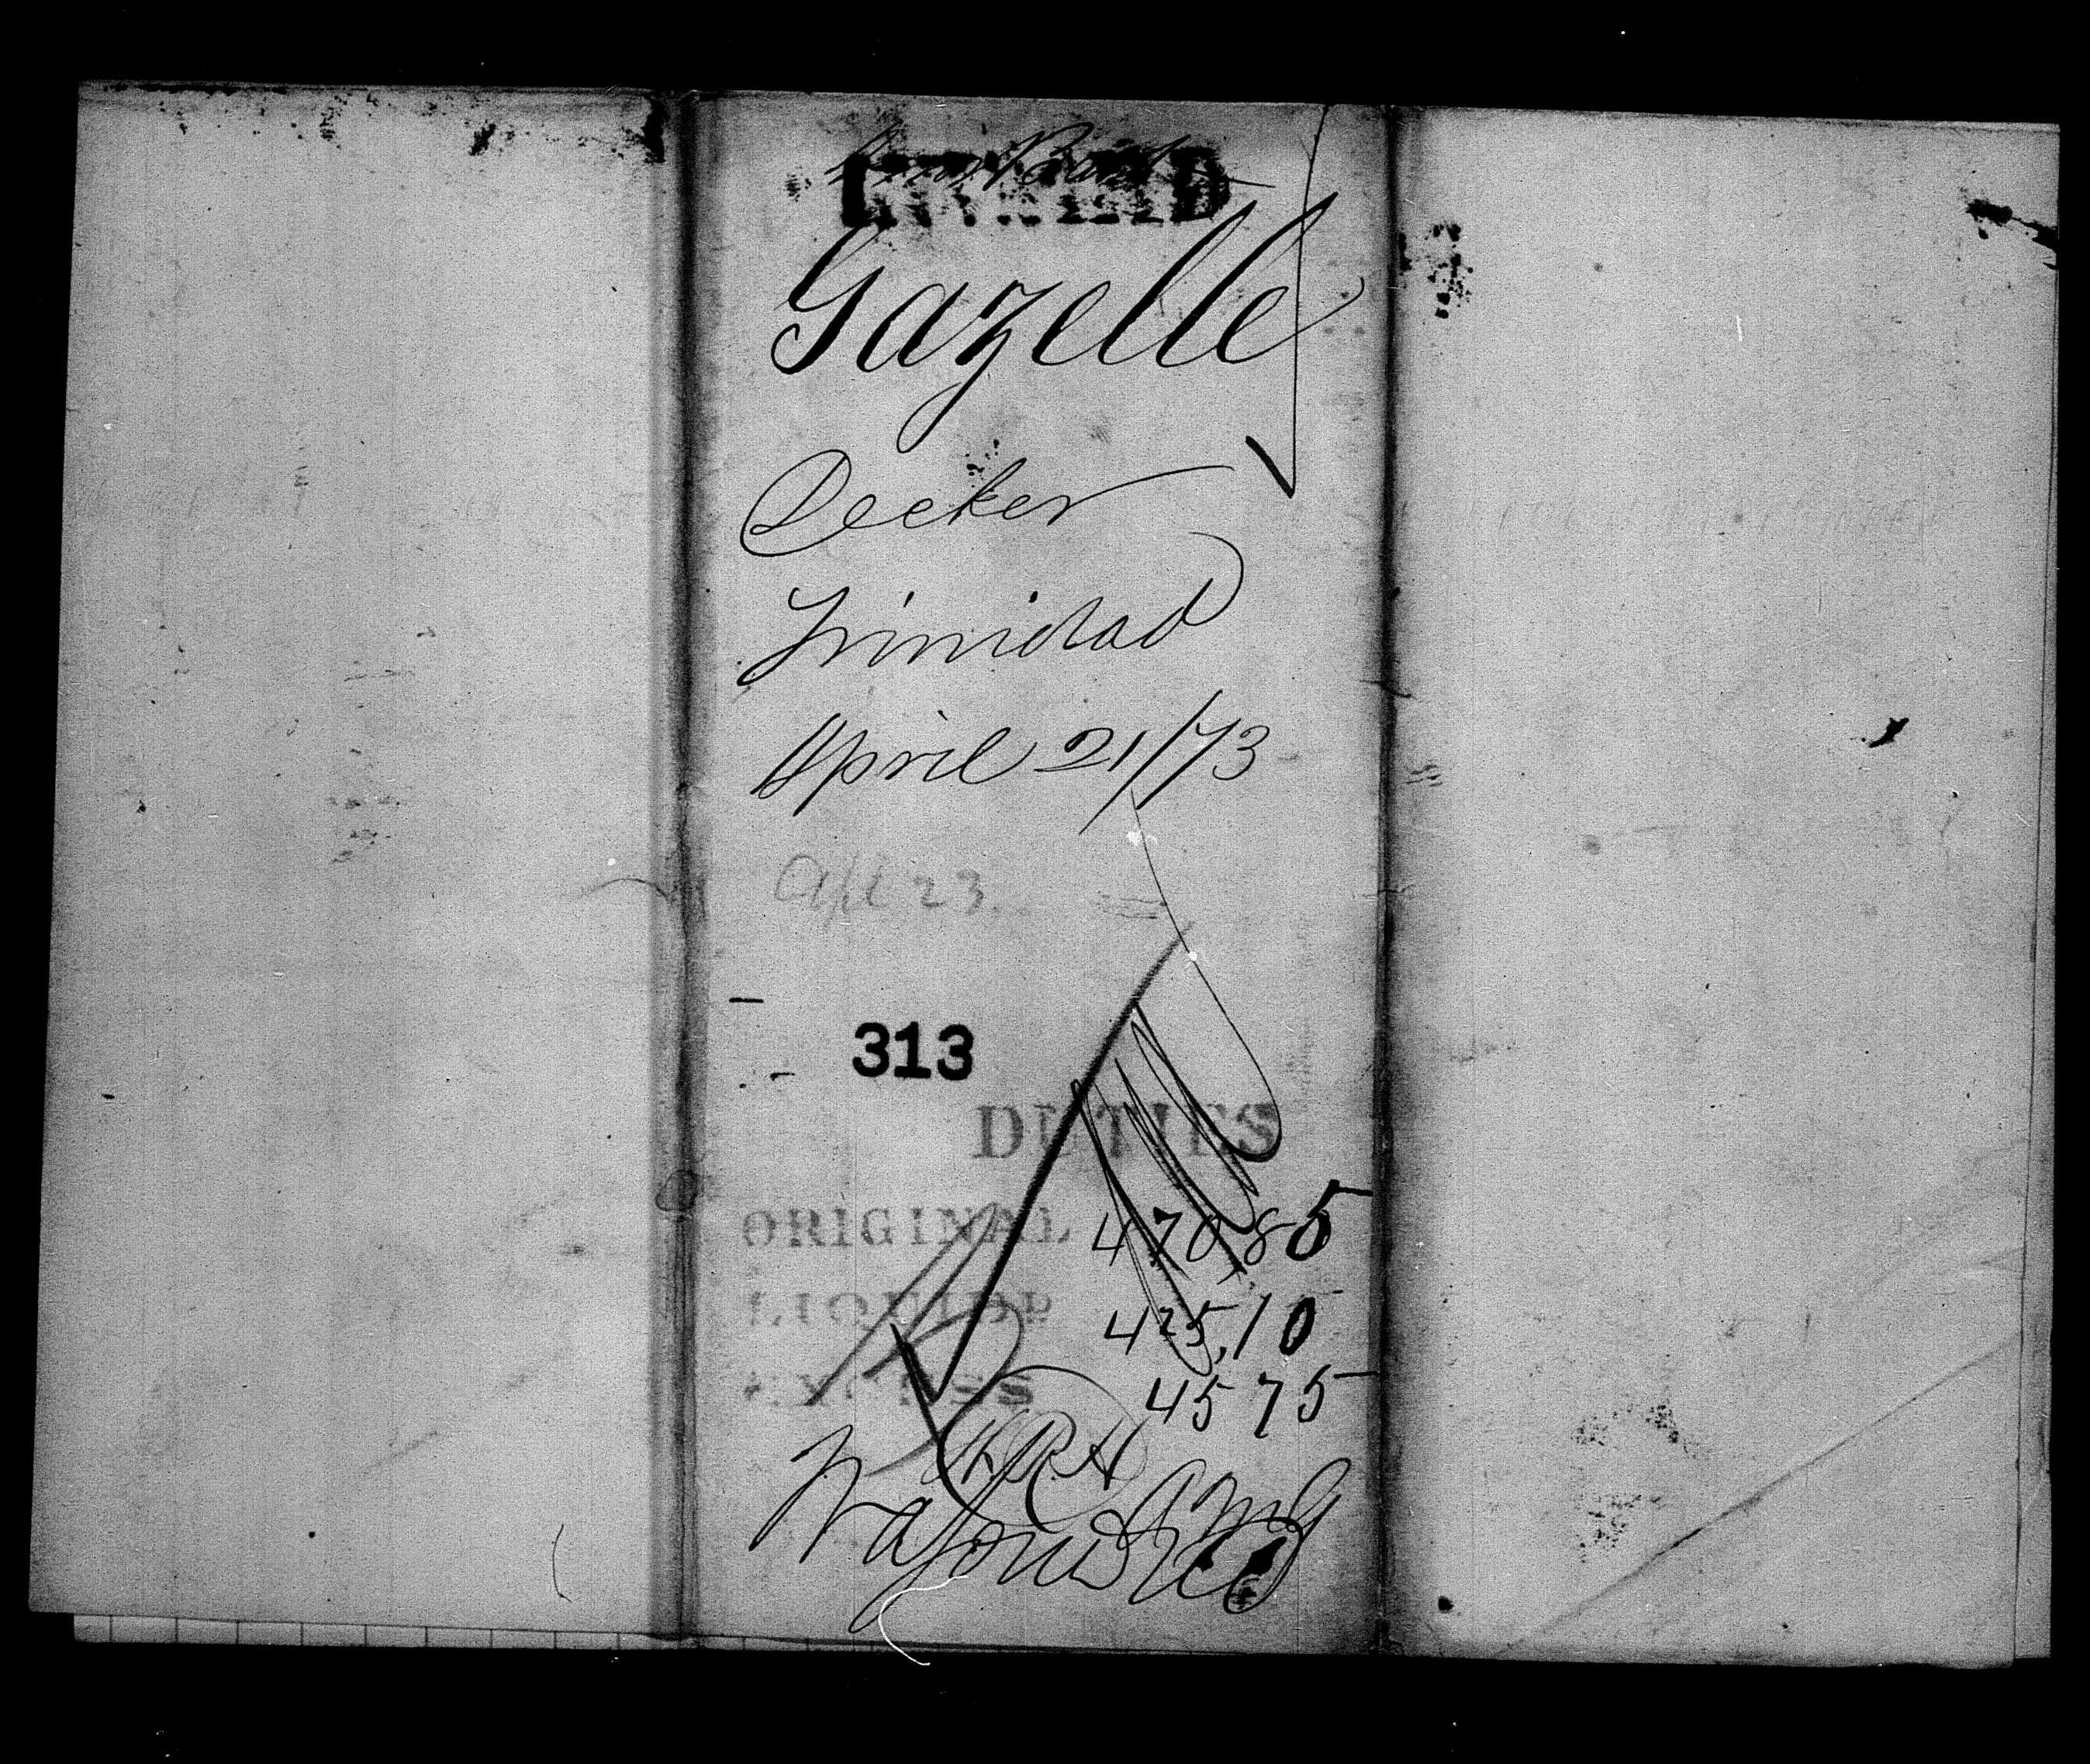 Gazelle
Decker
Trinidad
April 21/73
Apl 23.
313
DUTIES
ORIGINAL 470,85
LIQUIDD 425,10
EXCESS 45 75